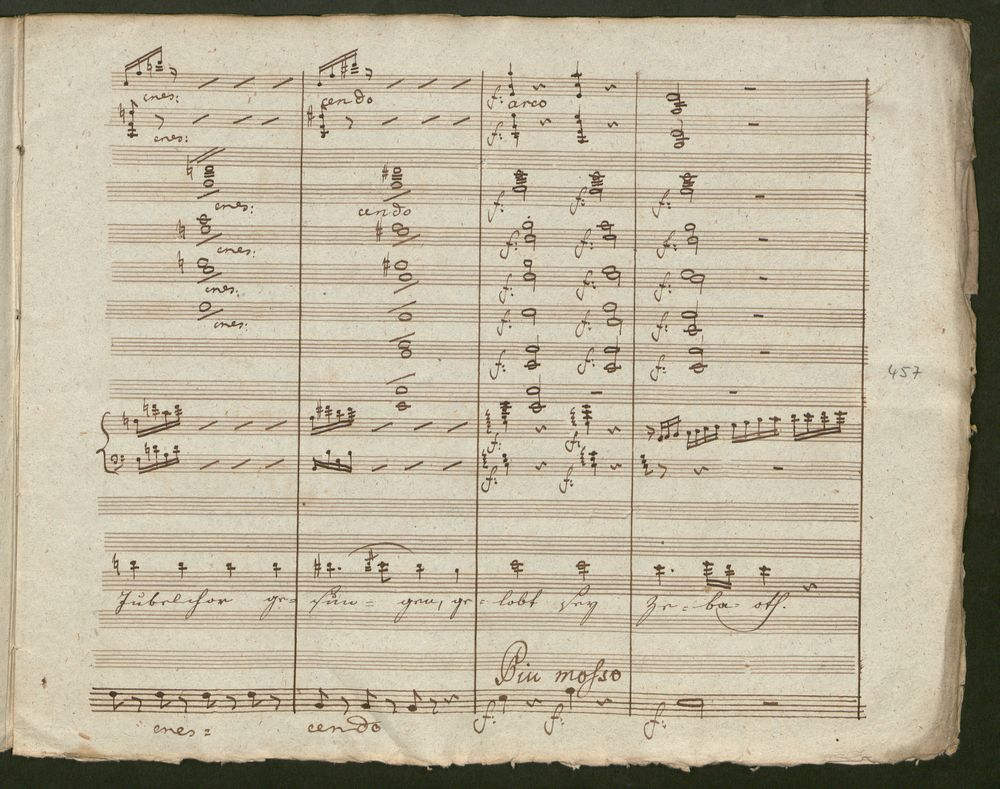 cres: cendo f: arco
cres: f:
cres: cendo f: f: f:
cres: f: f: f:
cres: f: f: f:
cres: f: f: f:
f: f: f:
457
f: f:
f: f:
Jubelchor ge= sun= gen, ge= lobt sey Ze= ba= oth.
Piu mosso
cres= cendo f: f: f: